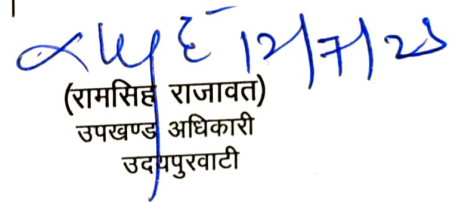 12/7/23
(रामसिह राजावत)
उपखण्ड अधिकारी
उदयपुरवाटी